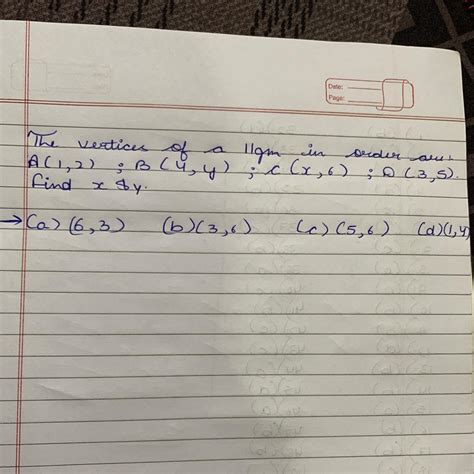 Date:
Page:
The vertices of a ||gm in order are:
A(1,2) ; B(4,y) ; C(x,6) ; D(3,5).
Find x & y.
→(a) (6,3) (b) (3,6) (c) (5,6) (d) (1,4)